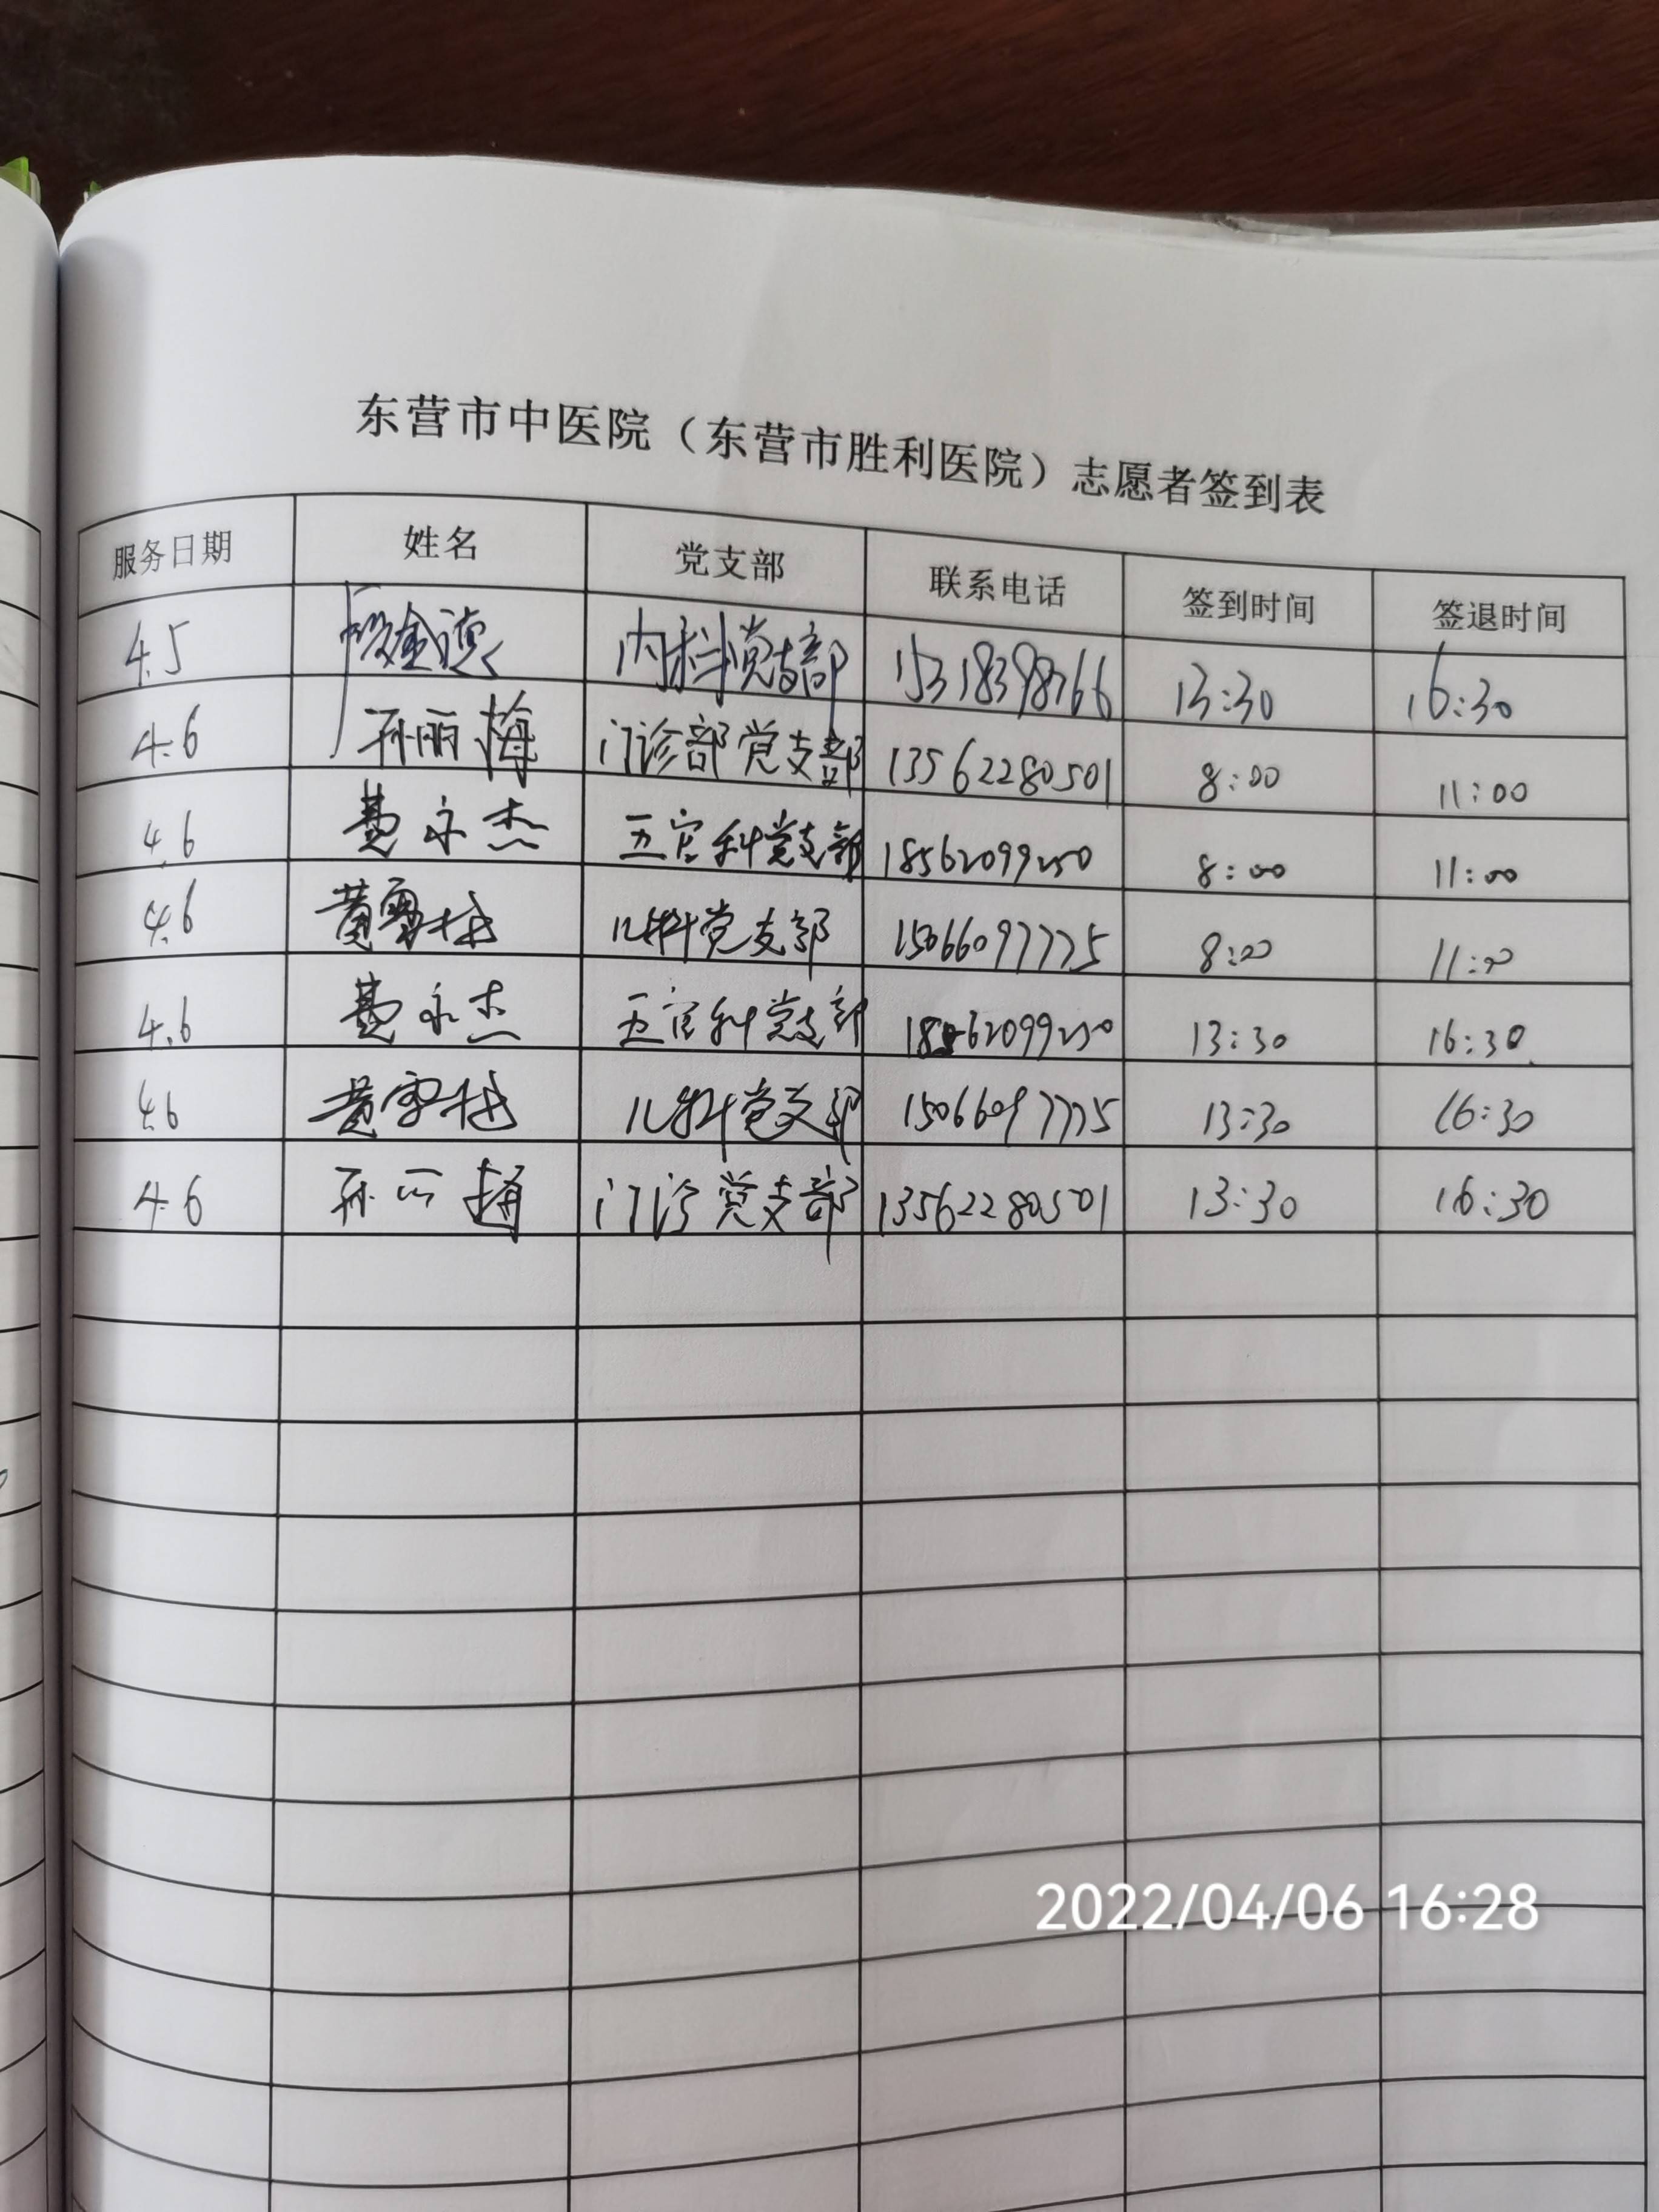 东营市中医院（东营市胜利医院）志愿者签到表
服务日期 姓名 党支部 联系电话 签到时间 签退时间
4.5 内科党支部 15318398766 13:30 16:30
4.6 孙丽梅 门诊部党支部 13562280501 8:00 11:00
4.6 费永杰 五官科党支部 18562099250 8:00 11:00
4.6 黄雪 儿科党支部 15066097775 8:00 11:00
4.6 费永杰 五官科党支部 18562099250 13:30 16:30
4.6 黄雪 儿科党支部 15066097775 13:30 16:30
4.6 孙丽梅 门诊党支部 13562280501 13:30 16:30
2022/04/06 16:28